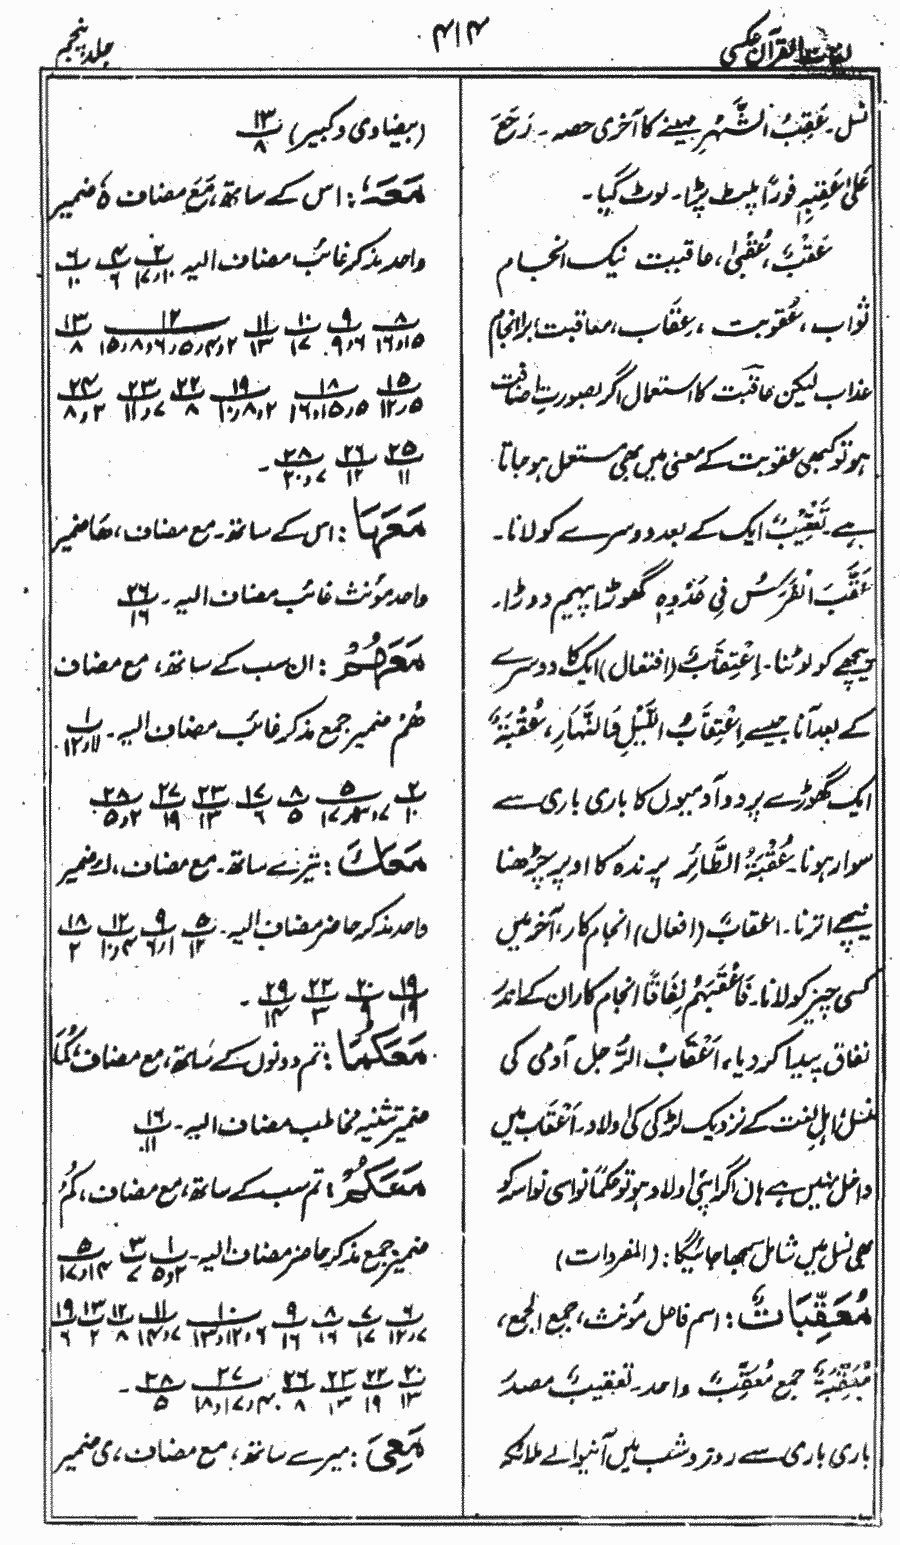 لغات القرآن عکسی
۴۱۴
جلد پنجم
نسل۔ عَقِبُ الشَّهْرِ مہینے کا آخری حصہ۔ رَجَعَ
عَلیٰ عَقِبِهٖ فوراً پلیٹ پڑا۔ لوٹ گیا۔
عُقْبٌ، عُقْبیٰ، عاقبت نیک انجام
ثواب، عُقوبت، عِقَاب، معاقبت برا انجام
عذاب لیکن عاقبت کا استعمال اگر بصورتِ اضافت
ہو تو کبھی عقوبت کے معنی میں بھی مستعمل ہو جاتا
ہے۔ تَعْقِیْبٌ ایک کے بعد دوسرے کو لانا۔
عَقَّبَ الْفَرَسُ فِی عَدْوِہٖ گھوڑا پیہم دوڑا۔
پیچھے کو لوٹنا۔ اِعْتِقَابٌ (افتعال) ایک کا دوسرے
کے بعد آنا جیسے اِعْتِقَابُ اللَّیْلِ وَالنَّهَارِ، عُقْبَةٌ
ایک گھوڑے پر دو آدمیوں کا باری باری سے
سوار ہونا۔ عُقْبَةُ الطَّائِرِ پرندہ کا اوپر چڑھنا
نیچے اترنا۔ اعقابٌ (افعال) انجام کار، آخر میں
کسی چیز کو لانا۔ فَاَعْقَبَهُمْ نِفَاقًا انجام کار ان کے اندر
نفاق پیدا کر دیا، اَعْقَابُ الرَّجل آدمی کی
نسل، اہلِ لغت کے نزدیک لڑکی کی اولاد۔ اَعْقَاب میں
داخل نہیں ہے ہاں اگر اپنی اولاد نہ ہو تو حکماً نواسی نواسہ کو
بھی نسل میں شامل سمجھا جائیگا: (المفردات)
مُعَقِّبَاتٌ: اسم فاعل مؤنث، جمع الجمع،
مُعَقِّبَةٌ جمع مُعَقِّبٌ واحد۔ تعقیبٌ مصدر
باری باری سے روز و شب میں آنیوالے ملائکہ
(بیضاوی و کبیر) ۱۳/۸
مَعَهٗ: اس کے ساتھ، مَعَ مضاف ہٗ ضمیر
واحد مذکر غائب مضاف الیہ ۲/۱۰،۱۷ ۴/۶ ۶/۱۰
۸/۱۵،۱۶ ۹/۶،۹ ۱۰/۱۷ ۱۱/۱۳ ۱۲/۲،۴،۵،۶،۸،۱۵ ۱۳/۸
۱۵/۵،۱۲ ۱۸/۵،۱۵،۱۶ ۱۹/۲،۸،۱۰ ۲۲/۸ ۲۳/۷،۱۱ ۲۴/۲،۸
۲۵/۱۱ ۲۶/۱۲ ۲۸/۷،۲۰۔
مَعَهَا: اس کے ساتھ۔ مع مضاف، ھَا ضمیر
واحد مؤنث غائب مضاف الیہ۔ ۲۶/۱۶
مَعَهُمْ: ان سب کے ساتھ، مع مضاف
ھُمْ ضمیر جمع مذکر غائب مضاف الیہ۔ ۱/۱۱،۱۲
۲/۱۰ ۵/۷،۱۳،۱۷ ۸/۵ ۱۷/۶ ۲۳/۱۳ ۲۷/۱۹ ۲۸/۲،۵
مَعَكَ: تیرے ساتھ۔ مع مضاف، كَ ضمیر
واحد مذکر حاضر مضاف الیہ۔ ۵/۱۲ ۹/۱،۶ ۱۲/۴،۱۰ ۱۸/۲
۱۹/۱۹ ۲۰/۹ ۲۲/۳ ۲۹/۱۴۔
مَعَكُمَا: تم دونوں کے ساتھ، مع مضاف، کُمَا
ضمیر تثنیہ مخاطب مضاف الیہ۔ ۱۶/۱۱
مَعَكُمْ: تم سب کے ساتھ، مع مضاف، کُمْ
ضمیر جمع مذکر حاضر مضاف الیہ۔ ۱/۲،۵ ۳/۷ ۵/۱۴،۱۷
۶/۷،۱۲ ۷/۱۷ ۸/۱۶ ۹/۱۶ ۱۰/۶،۱۲،۱۳ ۱۱/۷،۱۴ ۱۲/۸ ۱۳/۲ ۱۹/۶
۲۰/۱۳ ۲۲/۱۹ ۲۳/۱۳ ۲۶/۸ ۲۷/۴،۱۷،۱۸ ۲۸/۵۔
مَعِیَ: میرے ساتھ، مع مضاف، ی ضمیر